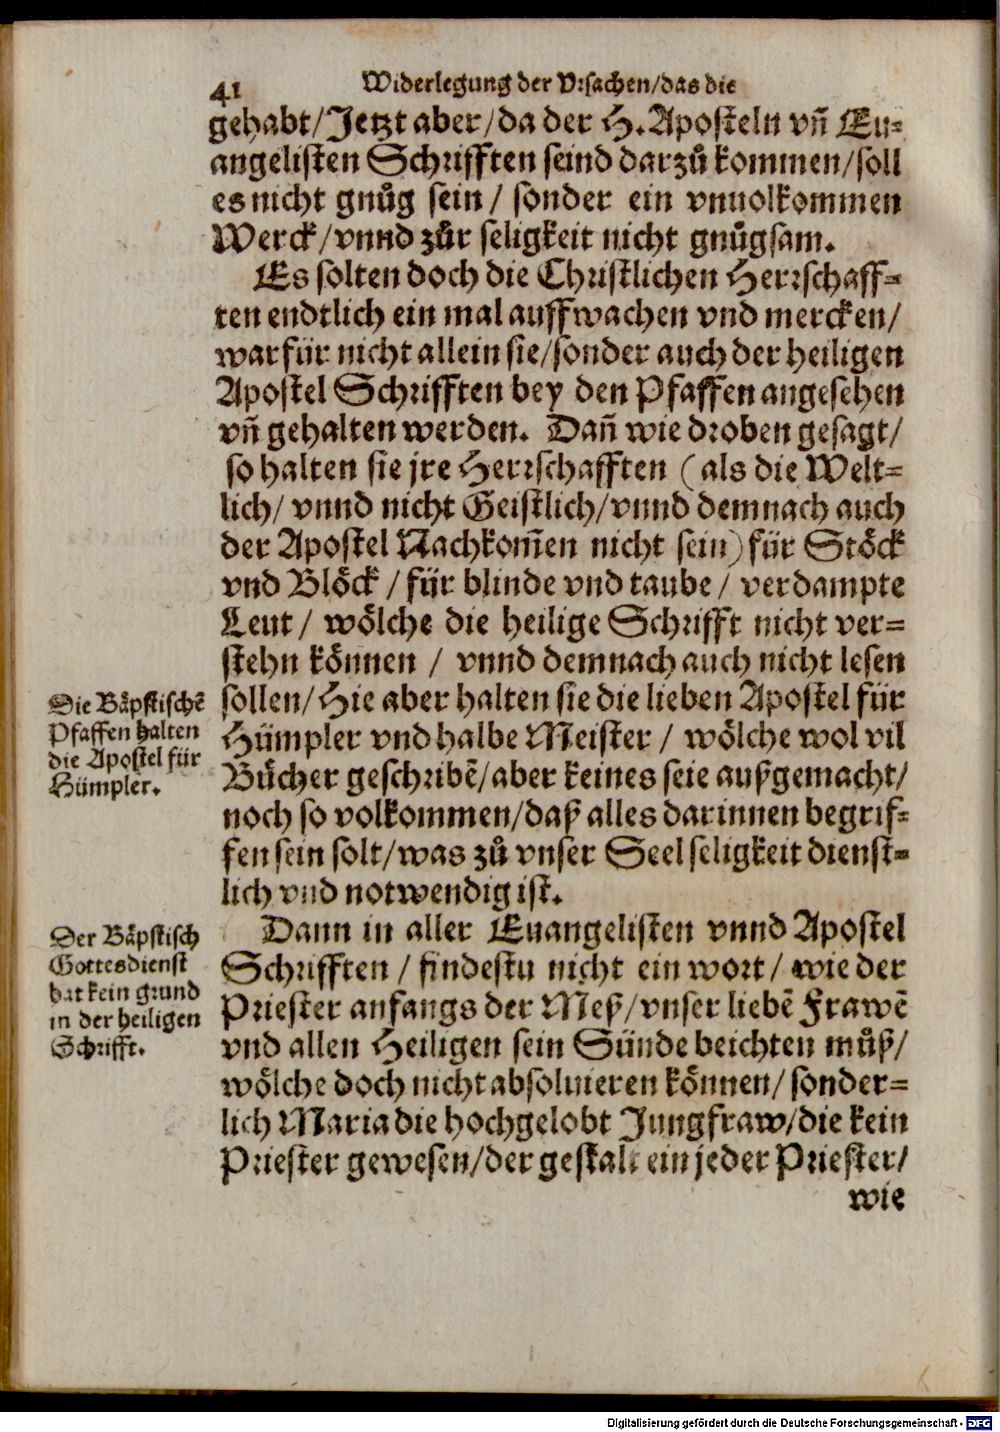 41 Widerlegung der Vrsachen/das die
gehabt/Jetzt aber/da der H. Aposteln vn̄ Eu-
angelisten Schrifften seind darzů kommen/soll
es nicht gnůg sein/ sonder ein vnuolkommen
Werck/vnnd zůr seligkeit nicht gnůgsam.
Es solten doch die Christlichen Herrschaff-
ten endtlich ein mal auffwachen vnd mercken/
warfür nicht allein sie/sonder auch der heiligen
Apostel Schrifften bey den Pfaffen angesehen
vn̄ gehalten werden. Dan̄ wie droben gesagt/
so halten sie jre Herrschafften (als die Welt-
lich/ vnnd nicht Geistlich/vnnd demnach auch
der Apostel Nachkom̄en nicht sein) für Stöck
vnd Blöck/für blinde vnd taube/ verdampte
Leut/ wölche die heilige Schrifft nicht ver-
stehn können/ vnnd demnach auch nicht lesen
sollen/Hie aber halten sie die lieben Apostel für
Hümpler vnd halbe Meister/ wölche wol vil
Bücher geschribē/aber keines seie außgemacht/
noch so volkommen/daß alles darinnen begrif-
fen sein solt/was zů vnser Seel seligkeit dienst-
lich vnd notwendig ist.
Die Bäpstischē
Pfaffen halten
die Apostel für
Hümpler.
Dann in aller Euangelisten vnnd Apostel
Schrifften/ findestu nicht ein wort/ wie der
Priester anfangs der Meß/vnser liebē Frawē
vnd allen Heiligen sein Sünde beichten můß/
wölche doch nicht absoluieren können/sonder-
lich Maria die hochgelobt Jungfraw/die kein
Priester gewesen/der gestalt ein jeder Priester/
wie
Der Bäpstisch
Gottesdienst
hat kein grund
in der heiligen
Schrifft.
Digitalisierung gefördert durch die Deutsche Forschungsgemeinschaft - DFG